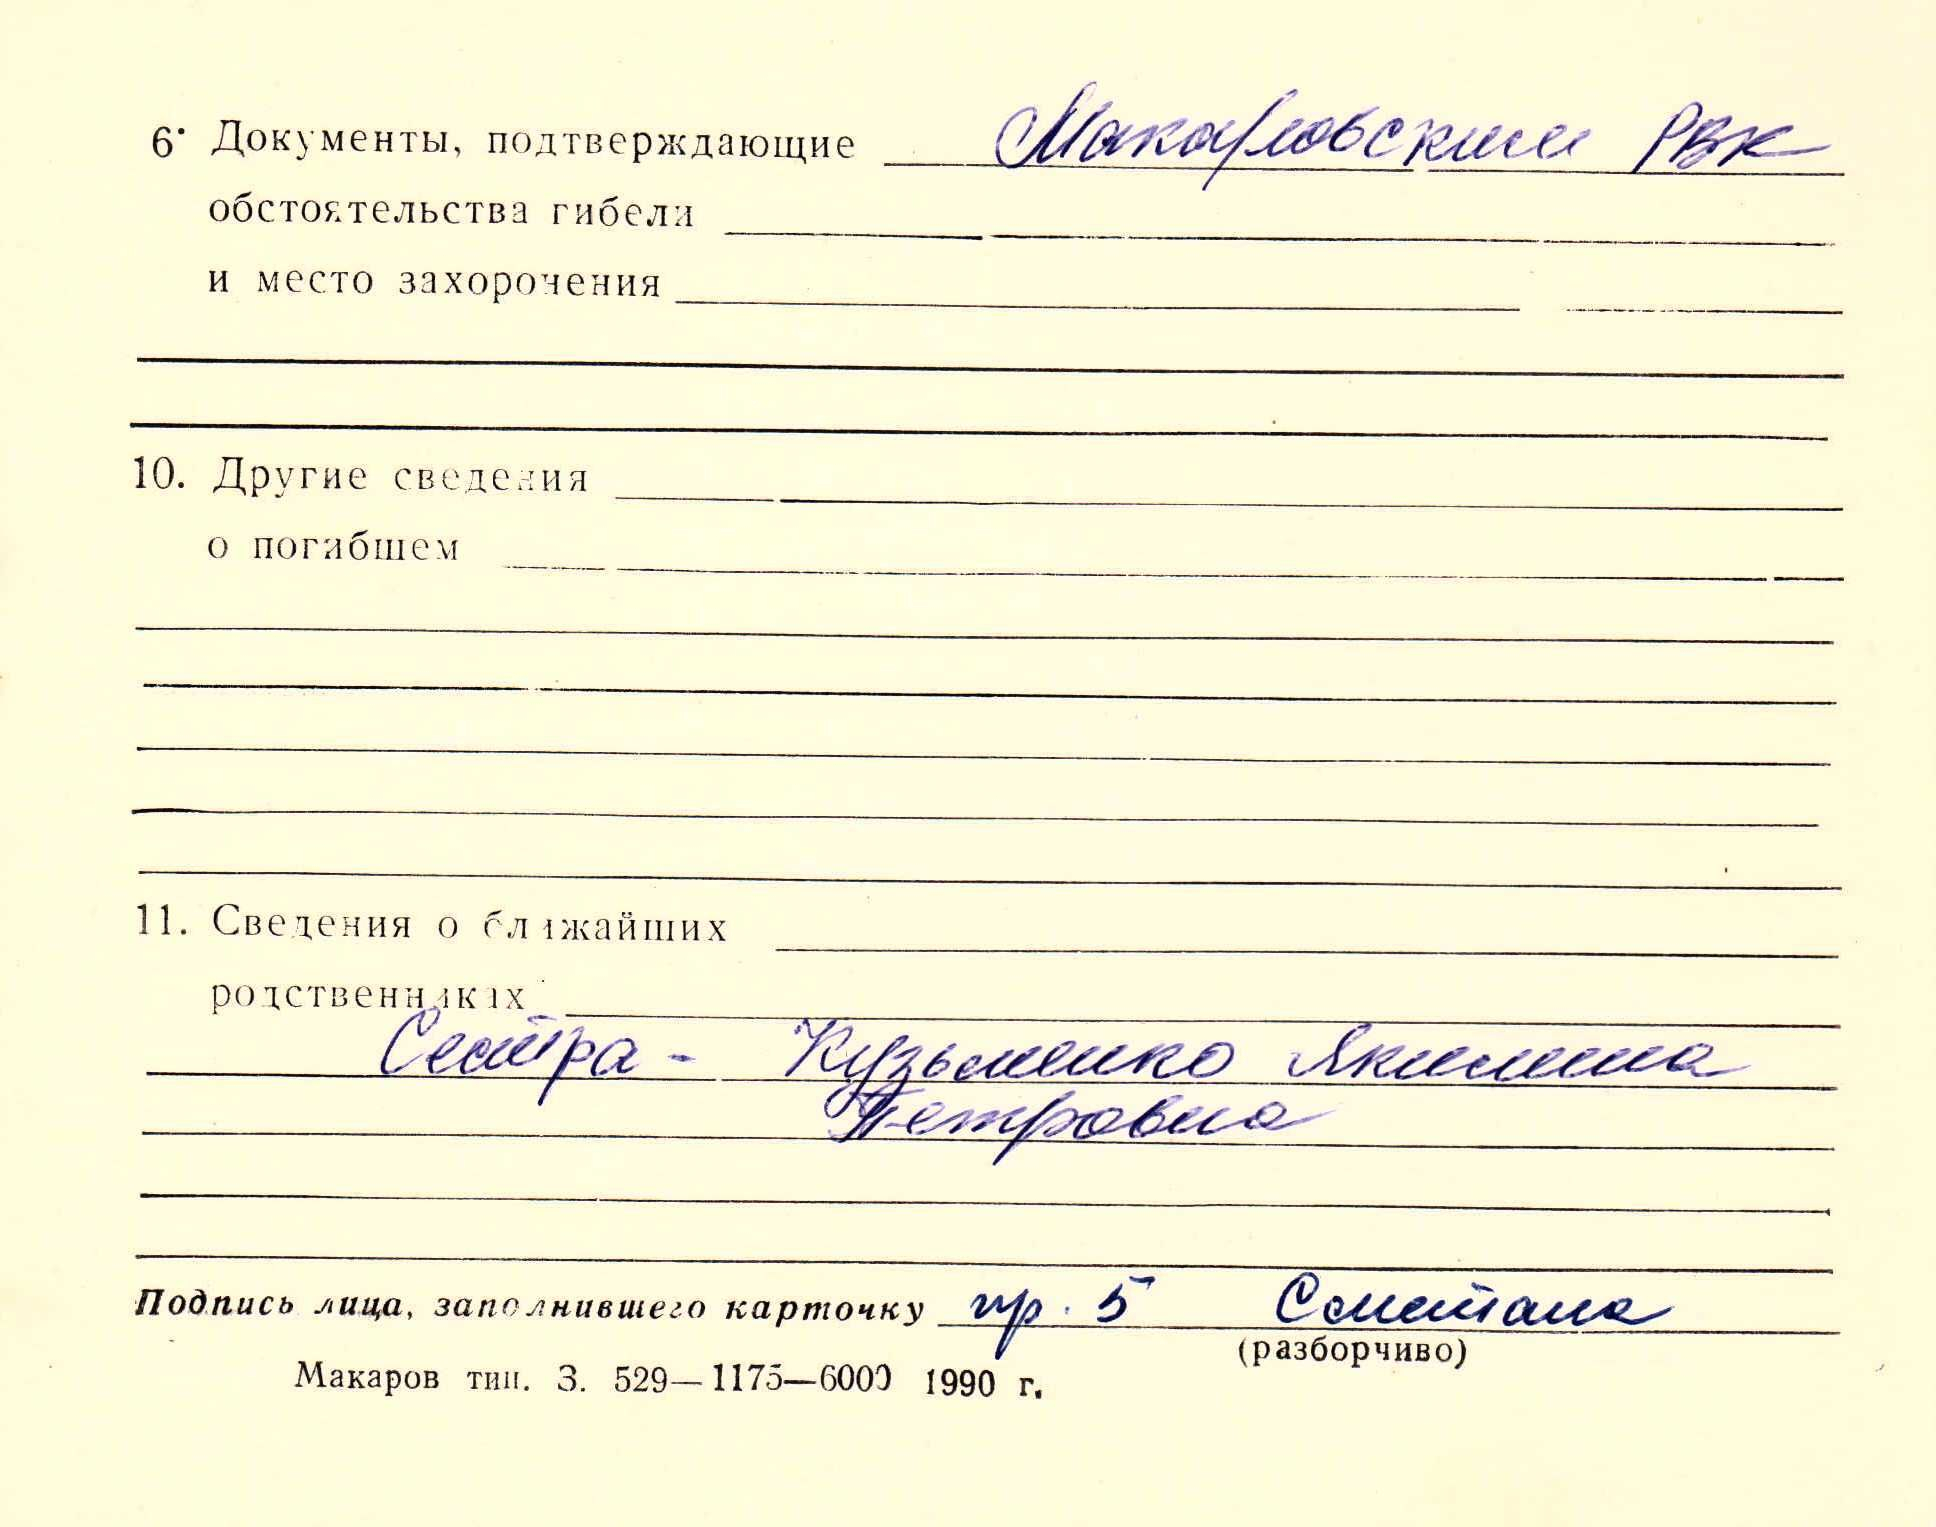 6. Документы, подтверждающие Макаровским РВК
обстоятельства гибели
и место захоронения
10. Другие сведения
о погибшем
11. Сведения о ближайших
родственниках
Сестра - Кузьменко Якилина
Петровна
Подпись лица, заполнившего карточку гр. 5 Сметана
(разборчиво)
Макаров тип. З. 529—1175—6000 1990 г.